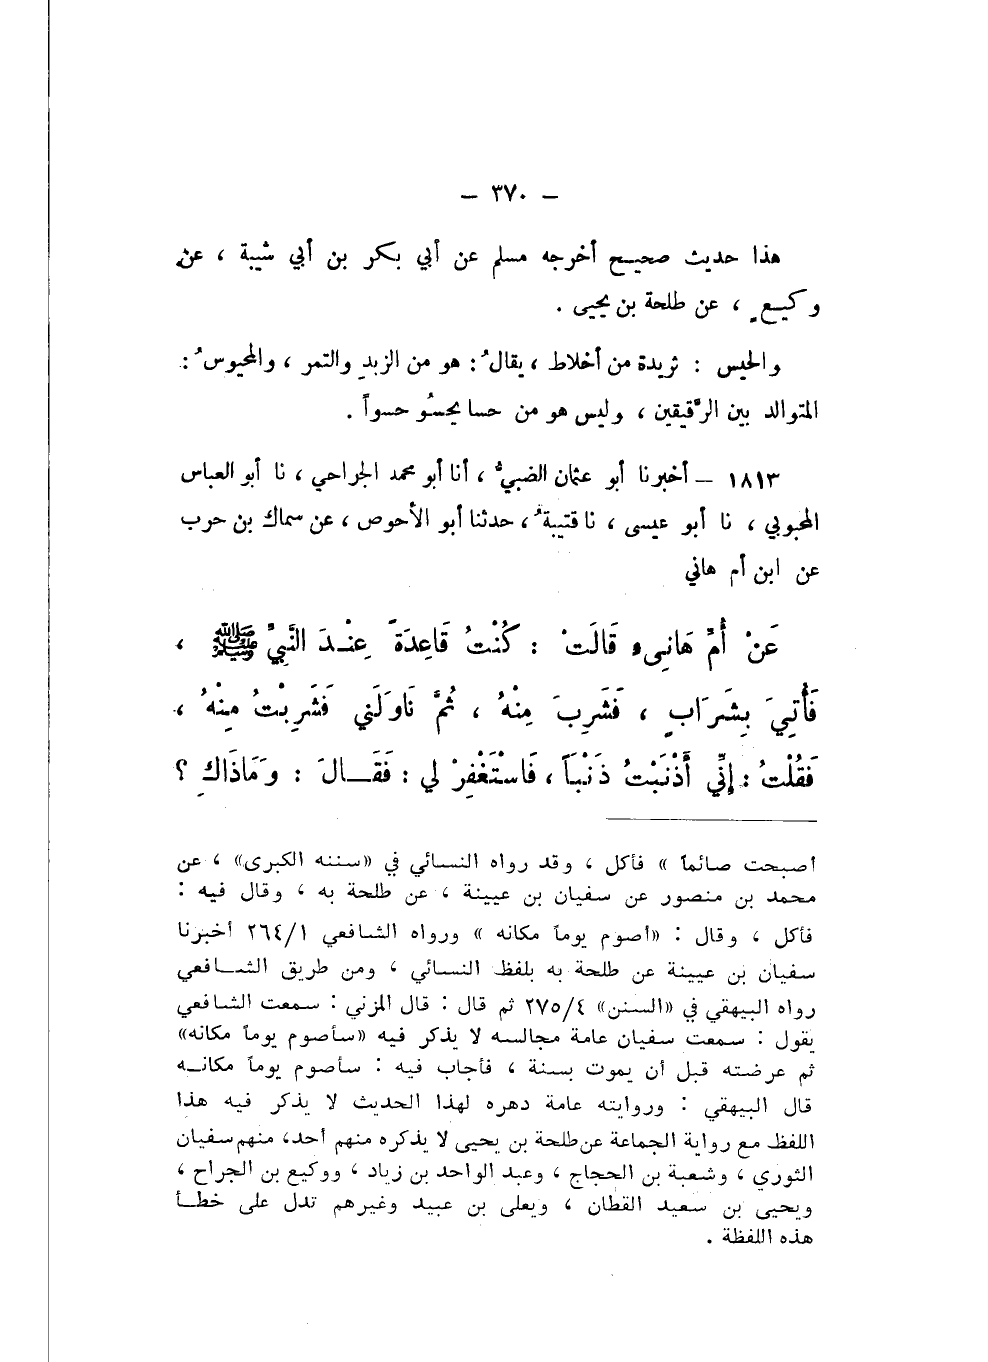 — ٣٧٠ —
هذا حديث صحيح أخرجه مسلم عن أبي بكر بن أبي شيبة ، عن
وكيعٍ ، عن طلحة بن يحيى .
والحيس : ثريدة من أخلاط ، يقالُ : هو من الزبدِ والتمر ، والمحيوسُ :
المتوالد بين الرَّقيقين ، وليس هو من حسا يحسُو حسواً .
١٨١٣ — أخبرنا أبو عثمان الضبيُّ ، أنا أبو محمد الجراحي ، نا أبو العباس
المحبوبي ، نا أبو عيسى ، نا قتيبةُ ، حدثنا أبو الأحوص ، عن سماك بن حرب
عن ابن أم هاني
عَنْ أُمِّ هَانِىء قَالَتْ : كُنْتُ قَاعِدَةً عِنْدَ النَّبِيِّ ﷺ ،
فَأُتِيَ بِشَرَابٍ ، فَشَرِبَ مِنْهُ ، ثُمَّ نَاوَلَنِي فَشَرِبْتُ مِنْهُ ،
فَقُلْتُ : إِنِّي أَذْنَبْتُ ذَنْبَاً ، فَاسْتَغْفِرْ لي : فَقَالَ : وَمَاذَاكِ ؟
أصبحت صائماً » فأكل ، وقد رواه النسائي في «سننه الكبرى» ، عن
محمد بن منصور عن سفيان بن عيينة ، عن طلحة به ، وقال فيه :
فأكل ، وقال : «أصوم يوماً مكانه » ورواه الشافعي ٢٦٤/١ أخبرنا
سفيان بن عيينة عن طلحة به بلفظ النسائي ، ومن طريق الشافعي
رواه البيهقي في «السنن» ٢٧٥/٤ ثم قال : قال المزني : سمعت الشافعي
يقول : سمعت سفيان عامة مجالسه لا يذكر فيه «سأصوم يوماً مكانه»
ثم عرضته قبل أن يموت بسنة ، فأجاب فيه : سأصوم يوماً مكانه
قال البيهقي : وروايته عامة دهره لهذا الحديث لا يذكر فيه هذا
اللفظ مع رواية الجماعة عن طلحة بن يحيى لا يذكره منهم أحد، منهم سفيان
الثوري ، وشعبة بن الحجاج ، وعبد الواحد بن زياد ، ووكيع بن الجراح ،
ويحيى بن سعيد القطان ، ويعلى بن عبيد وغيرهم تدل على خطأ
هذه اللفظة .